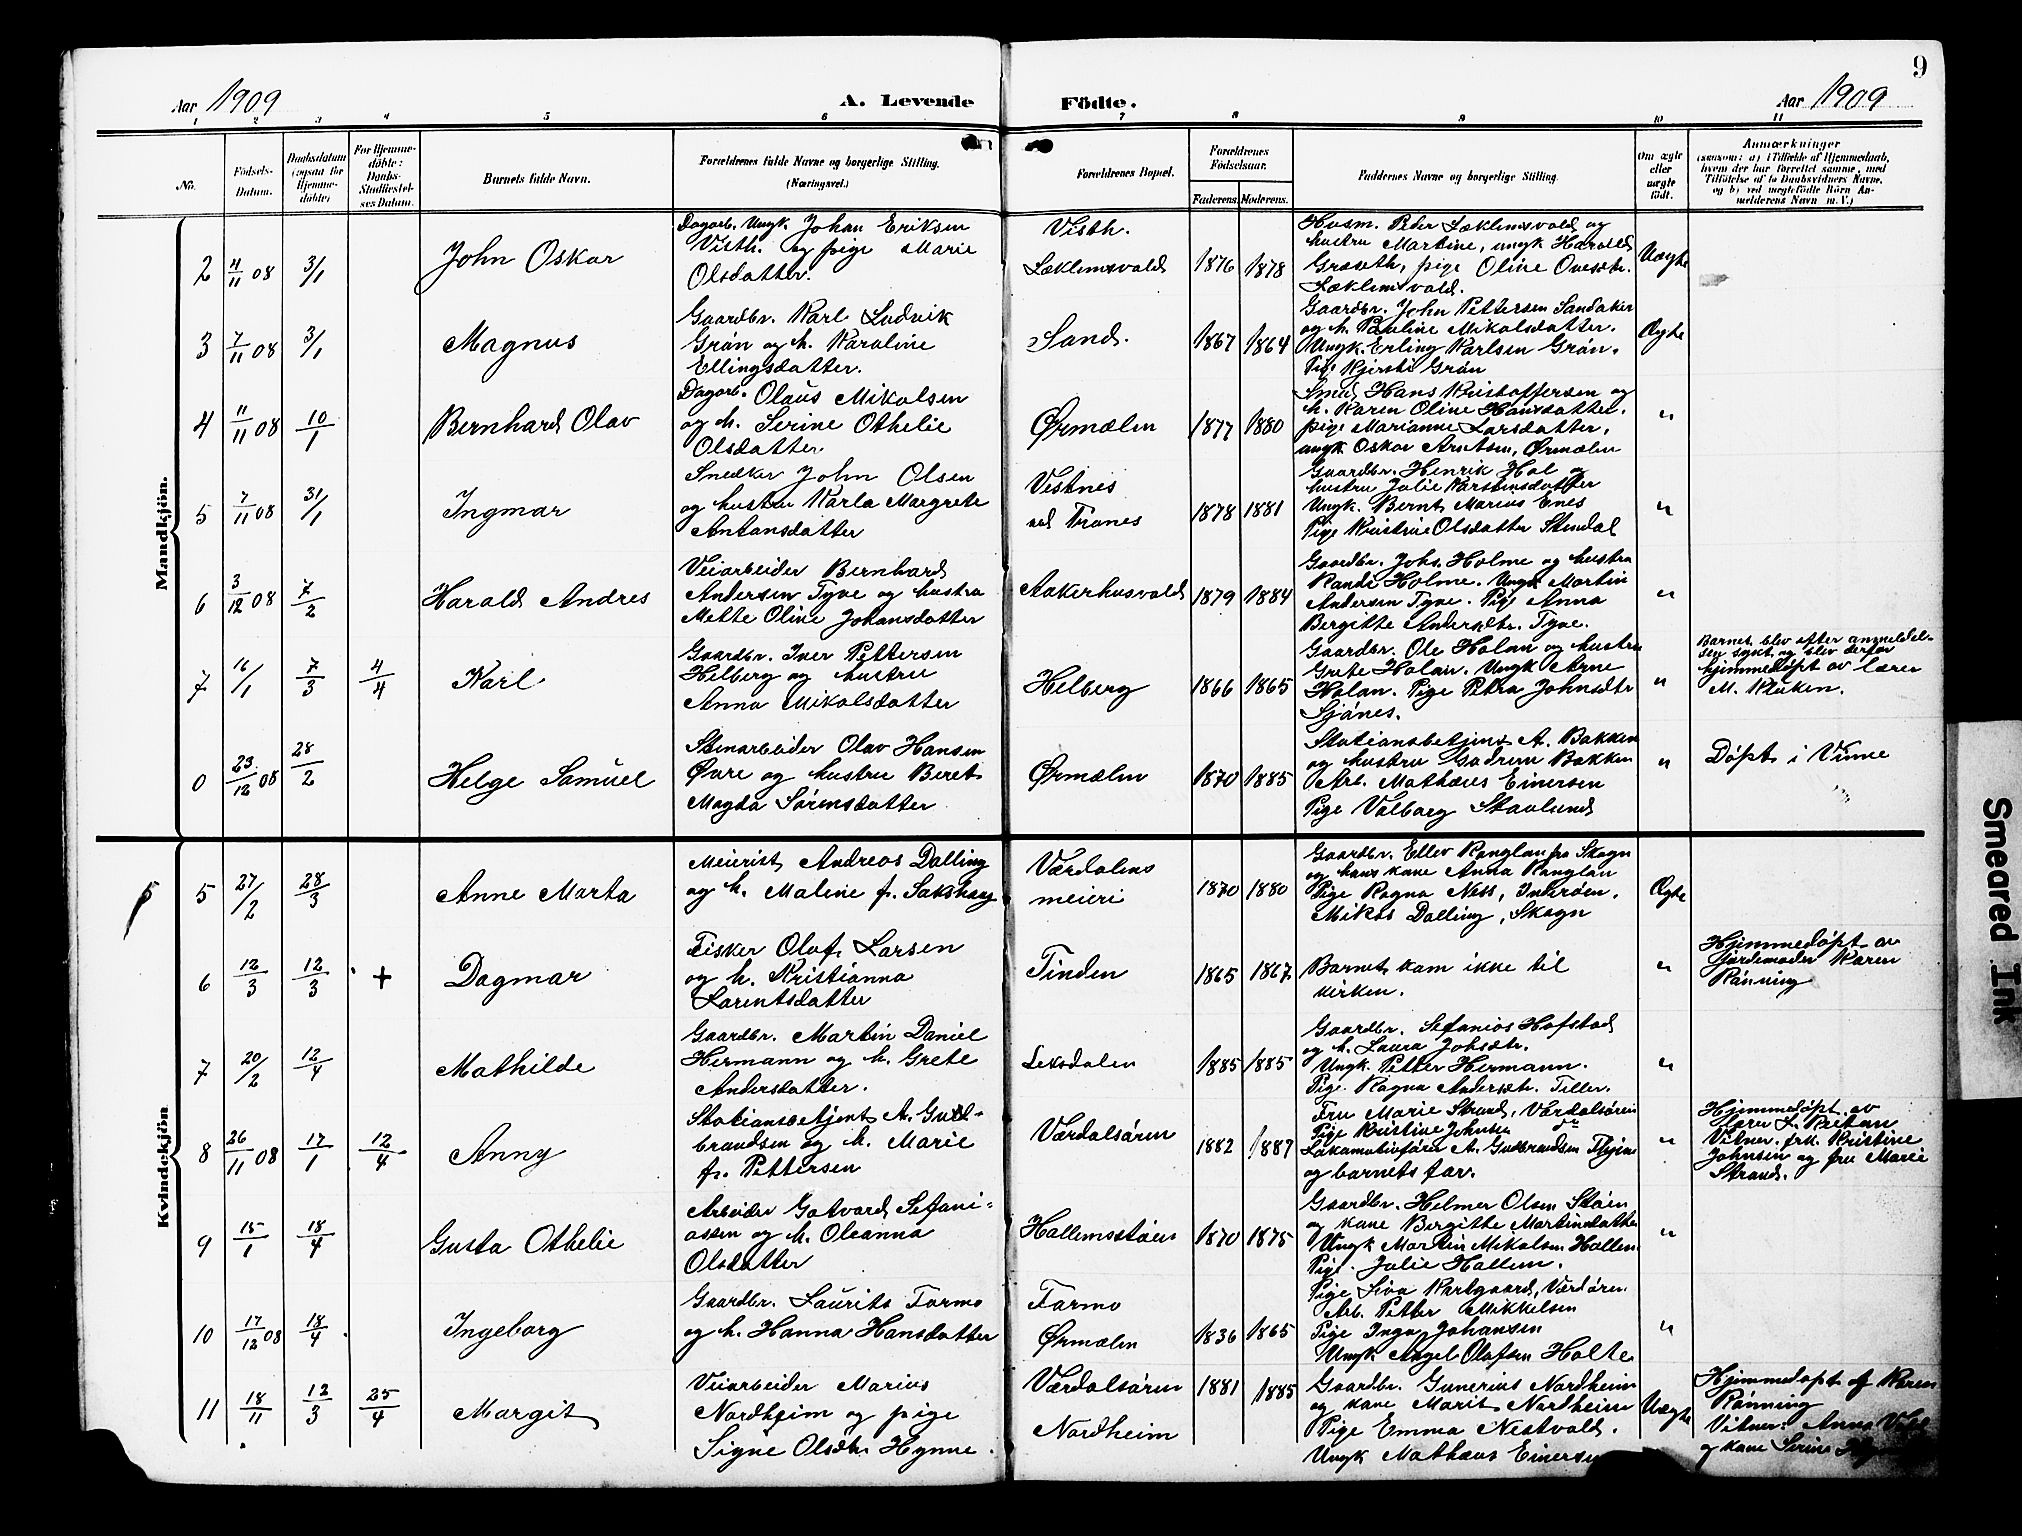 9
Aar 1909
A. Levende
Födte.
Aar 1909
1 2 3 4 5 6 7 8 9 10 11
No.
Födsels-
Datum.
Daabsdatum
(ogsaa for
Hjemme-
döbte)
For Hjemme-
döbte:
Daabs-
Stadfæstel-
ses Datum.
Barnets fulde Navn.
Forældrenes fulde Navne og borgerlige Stilling.
(Næringsvei.)
Forældrenes Bopæl.
Forældrenes
Födselsaar.
Faderens.
Moderens.
Faddernes Navne og borgerlige Stilling.
Om ægte
eller
uægte
født.
Anmærkninger
(saasom: a) i Tilfælde af Hjemmedaab,
hvem der har forrettet samme, med
Tilföielse af to Daabsvidners Navne,
og b) ved uægtefödte Börn An-
melderens Navn m. V.)
Mandkjön.
2 4/11 08 3/1
John Oskar
Dagarb. Ungk. Johan Eriksen
Visth. og pige Marie
Olsdatter.
Visth.
Læklemsvald
1876 1878
Husm. Peter Læklemsvald og
hustru Martine, ungk Harald
Græseth, pige Oline Ovesdtr.
Læklemsvald.
Uægte
3 7/11 08 3/1
Magnus
Gaardbr. Karl Ludvik
Grøn og h. Karoline
Ellingsdatter.
Sand.
1867 1864
Gaardbr. John Pettersen Sandaker
og h. Pauline Mikalsdatter.
Ungk. Erling Karlsen Grøn.
Pige Kjersti Grøn
Ægte
4 11/11 08 10/1
Bernhard Olav
Dagarb. Olaus Mikalsen
og h. Serine Othelie
Olsdatter
Ørmælen
1877 1880
Smed Hans Kristoffersen og
h. Karen Oline Hansdatter.
pige Marianne Larsdatter,
ungk Oskar Arntsen, Ørmælen
"
5 7/11 08 31/1
Ingmar
Snedker John Olsen
og hustru Karla Margrete
Antonsdatter
Vestnes
ved Tranes
1878 1881
Gaardbr. Henrik Hal og
hustru Julie Karstensdatter
Ungk. Bernt Marius Enes
Pige Kristine Olsdatter Stendal
"
6 3/12 08 7/2
Harald Andres
Veiarbeider Bernhard
Andersen Tyve og hustru
Mette Oline Johansdatter
Aakerhusvald
1879 1884
Gaardbr. Johs. Holme og hustru
Randi Holme. Ungk Martin
Andersen Tyve. Pige Anna
Bergitte Andersdtr. Tyve.
"
7 16/1 7/3 4/4
Karl
Gaardbr. Iver Pettersen
Helberg og hustru
Anna Mikalsdatter
Helberg
1866 1865
Gaardbr. Ole Holan og hustru
Grete Holan. Ungk Arne
Holan. Pige Petra Johnsdtr
Sjønes.
"
Barnet blev efter anmeldel-
sen sykt og blev derfor
hjemmedøpt av lærer
M. Kluken.
0 23/12 08 28/2
Helge Samuel
Stenarbeider Olav Hansen
Øvre og hustru Beret
Magda Sørensdatter
Ørmælen
1870 1885
Stationsbetjent A. Bakken
og hustru Gudrun Bakken
Arb. Mathæus Einersen
Pige Valborg Stavlund
"
Døpt i Vinne
Kvindekjön
5
5 27/2 28/3
Anne Marta
Meierist Andreas Dalling
og h. Maline f. Sakshaug
Værdalens
meieri
1870 1880
Gaardbr. Ellev Ranglan fra Skogn
og hans kane Anna Ranglan
Pige Ragna Ness, Inderøen.
Mikas Dalling, Skogn
Ægte
6 12/3 12/3 +
Dagmar
Fisker Olaf Larsen
og h. Kristianna
Larentsdatter
Tinden
1865 1867
Barnet kam ikke til
kirken.
"
Hjemmedøpt av
jordemoder Karen
Rønning
7 20/2 12/4
Mathilde
Gaardbr. Martin Daniel
Hermann og h. Grete
Andersdatter.
Leksdalen
1885 1885
Gaardbr. Sefanias Hofstad
og h. Laura Johsdtr.
Ungk. Petter Hermann.
Pige Ragna Andersdtr. Tiller.
"
8 26/11 08 17/1 12/4
Anny
Stationsbetjent A. Guld-
brandsen og h. Marie
f. Pettersen
Værdalsøren
1882 1887
Fru Marie Strand, Værdalsøren
Pige Kristine Johnsen do
Lokomotivfører A. Guldbrandsen Thjem
og barnets far.
"
Hjemmedøpt av
lærer L. Reitan
Vitner: frk. Kristine
Johnsen og fru Marie
Strand.
9 15/1 18/4
Gusta Othelie
Arbeider Gotvard Sefani-
assen og h. Oleanna
Olsdatter
Hallemsstøen
1870 1875
Gaardbr. Helmer Olsen Støen
og kane Bergitte Martinsdatter
Ungk Martin Mikalsen Hallem
Pige Julie Hallem.
"
10 17/12 08 18/4
Ingeborg
Gaardbr. Laurits Farmo
og h. Hanna Hansdatter
Farmo
Ørmælen
1836 1865
Pige Siva Karlgaard, Værdøren
Arb. Petter Mikkelsen
Pige Inga Johansen
Ungk Angel Olafsen Holte
"
11 18/11 12/3 25/4
Margit
Veiarbeider Marius
Nordheim og pige
Signe Olsdtr Hynne.
Værdalsøren
Nordheim
1881 1885
Gaardbr. Gunerius Nordheim
og kane Marit Nordheim
Pige Emma Nestvold.
Ungk Mathæus Einersen
Uægte
Hjemmedøpt af Karen
Rønning
Vitner: Anna
og kane Serine
Smeared Ink